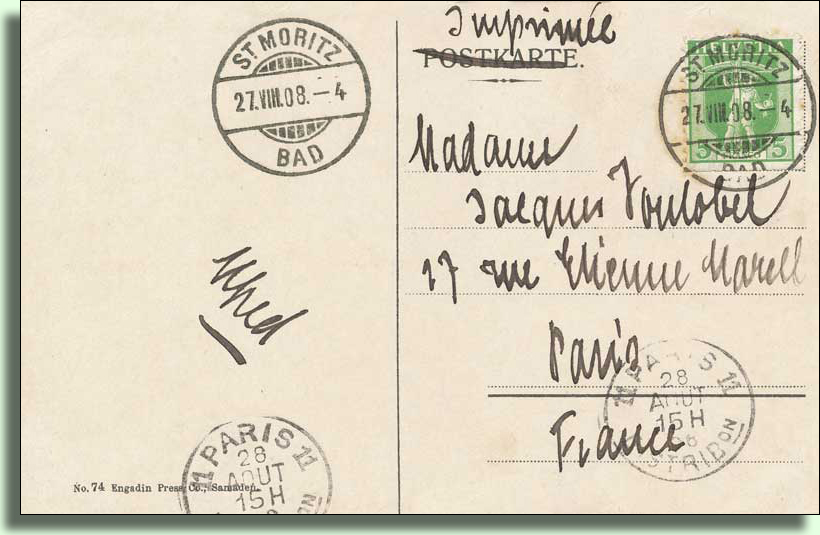 Imprimée
POSTKARTE.
ST MORITZ
27.VIII.08.-4
BAD
HELVETIA
5 5
ST MORITZ
27.VIII.08. 4
BAD
Madame
Jacques
17 rue Etienne Marcell
Paris
France
Alfred
11 PARIS 11
28
AOUT
15H
11 PARIS 11
28
AOUT
15H
DISTRIBON
No. 74 Engadin Press Co., Samaden.